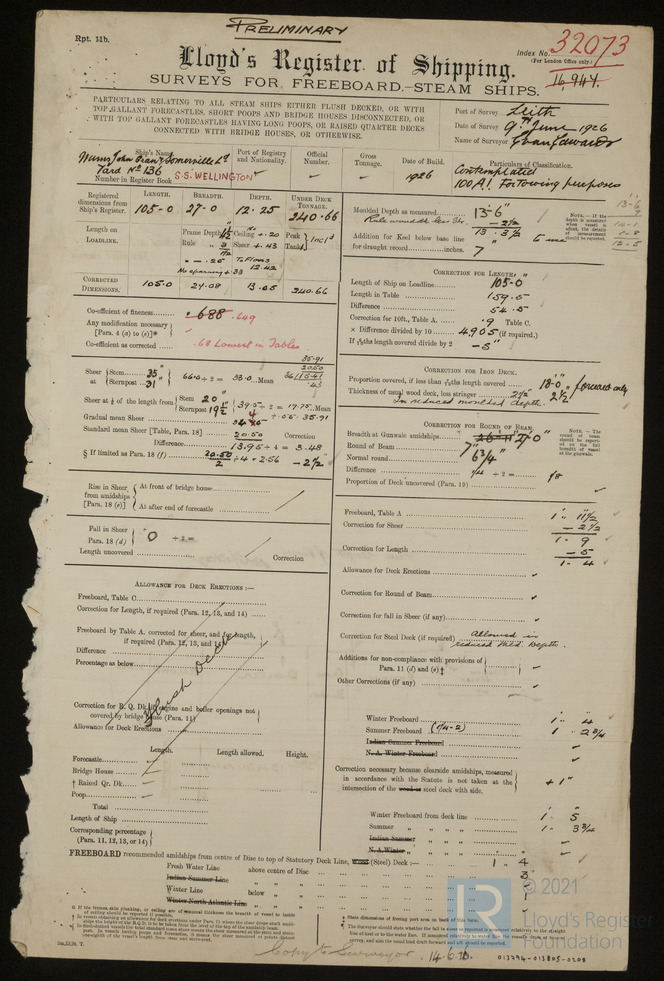 PRELIMINARY
Rpt. 11b.
Index No. 32073
(For London Office only.)
16,944.
Lloyd's Register of Shipping.
SURVEYS FOR FREEBOARD.—STEAM SHIPS.
PARTICULARS RELATING TO ALL STEAM SHIPS EITHER FLUSH DECKED, OR WITH
TOP GALLANT FORECASTLES, SHORT POOPS AND BRIDGE HOUSES DISCONNECTED, OR
WITH TOP GALLANT FORECASTLES HAVING LONG POOPS, OR RAISED QUARTER DECKS
CONNECTED WITH BRIDGE HOUSES, OR OTHERWISE.
Port of Survey Leith
Date of Survey 9th June 1926
Name of Surveyor Evan Edwards
Ship's Name.
Port of Registry and Nationality.
Official Number.
Gross Tonnage.
Date of Build.
Particulars of Classification.
Yard No 136
Number in Register Book S.S. WELLINGTON
1926
Contemplated
100A1 For Towing purposes
Registered dimensions from Ship's Register.
LENGTH. BREADTH. DEPTH. UNDER DECK TONNAGE.
105-0 27-0 12.25 240.66
Length on LOADLINE.
Frame Depth
Ceiling + .20
Rule
Sheer + .43
Peak Tank Incld
12.42
CORRECTED DIMENSIONS.
105.0 27.08 13.05 240.66
Moulded Depth as measured 13-6"
Addition for Keel below base line for draught record inches. 7"
CORRECTION FOR LENGTH.
Length of Ship on Loadline 105-0
Length in Table 159.5
Difference 54.5
Correction for 10ft., Table A. .9 Table C.
× Difference divided by 10 4.905 (if required.)
If 6/10ths length covered divide by 2 -5"
Co-efficient of fineness .688 .649
Any modification necessary [Para. 4 (a) to (e)]*
Co-efficient as corrected .68 Lowest in Tables
CORRECTION FOR IRON DECK.
Proportion covered, if less than 7/10ths length covered 18-0" forward only
Thickness of usual wood deck, less stringer 2½"
In reduced moulded depth.
Sheer at Stem 35"
Sternpost 31"
66.0 ÷ 2 = 33.0 Mean
Sheer at ⅛ of the length from Stem 20"
Sternpost 19½"
39.5 ÷ 2 = 19.75 Mean
Gradual mean Sheer
÷ .55 35.91
Standard mean Sheer [Table, Para. 18] 20.50
Correction
Difference 13.95 ÷ 4 = 3.48
§ If limited as Para. 18 (f) 20.50/2 ÷ 4 = 2.56 - 2½"
CORRECTION FOR ROUND OF BEAM.
Breadth at Gunwale amidships 27'0"
Round of Beam 7"
Normal round 6¾"
Difference ¼ ÷ 2 = ⅛
Proportion of Deck uncovered (Para. 19)
Rise in Sheer from amidships [Para. 18 (e)]
At front of bridge house
At after end of forecastle
Fall in Sheer Para. 18 (d) 0 ÷ 2 =
Length uncovered
Correction
Freeboard, Table A 1' 11½
Correction for Sheer - 2½
1 - 9
Correction for Length - 5
1 - 4
Allowance for Deck Erections
Correction for Round of Beam
Correction for fall in Sheer (if any)
Correction for Steel Deck (if required) Allowed in
reduced Mld. Depth.
Additions for non-compliance with provisions of Para. 11 (d) and (e) ‡
Other Corrections (if any)
ALLOWANCE FOR DECK ERECTIONS :—
Freeboard, Table C
Correction for Length, if required (Para. 12, 13, and 14)
Freeboard by Table A. corrected for sheer, and for length,
if required (Para. 12, 13, and 14)
Difference
Percentage as below
Flush Deck
Correction for R. Q. Dk. if engine and boiler openings not
covered by bridge house (Para. 11)
Allowance for Deck Erections
Length. Length allowed. Height.
Forecastle
Bridge House
† Raised Qr. Dk.
Poop
Total
Length of Ship
Corresponding percentage (Para. 11, 12, 13, or 14)
Winter Freeboard 1' - 4
Summer Freeboard 1 - 2¾
Indian Summer Freeboard
N. A. Winter Freeboard
Correction necessary because clearside amidships, measured
in accordance with the Statute is not taken at the
intersection of the wood or steel deck with side. + 1"
Winter Freeboard from deck line 1 - 5
Summer " " " " 1 - 3¾
Indian Summer " " " "
N. A. Winter " " " "
FREEBOARD recommended amidships from centre of Disc to top of Statutory Deck Line, Wood (Steel) Deck :— 1 . 4
Fresh Water Line above centre of Disc 3
Indian Summer Line " "
Winter Line below "
Winter North Atlantic Line " "
Copy to Surveyor. 14.6.26.
013794-013805-0208
© 2021
Lloyd's Register
Foundation